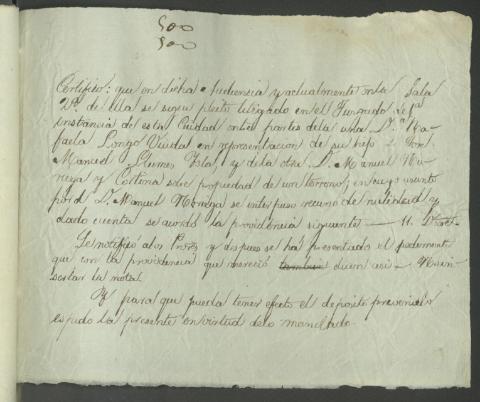 500
500
Certifico: que en dicha Audiencia y actualmente en la Sala
de ella se sigue pleito litigado en el Juzgado de 1ª
instancia de esta Ciudad entre partes de la una Dª Ra-
faela Longo Viuda en representacion de su hijo Don
Manuel y de la otra D. Manuel No-
riega y Cortina sobre propiedad de un terreno; en cuyo asunto
por el D. Manuel Noriega se interpuso recurso de nulidad y
dado cuenta se acordó la providencia siguiente — 11.
Se notificó a los Pror.es y despues se ha presentado el pedimento
que con la providencia que mereció tambien dicen asi —
sertar la nota
Y para que pueda tener efecto el deposito prevenido
espido la presente en virtud de lo mandado.